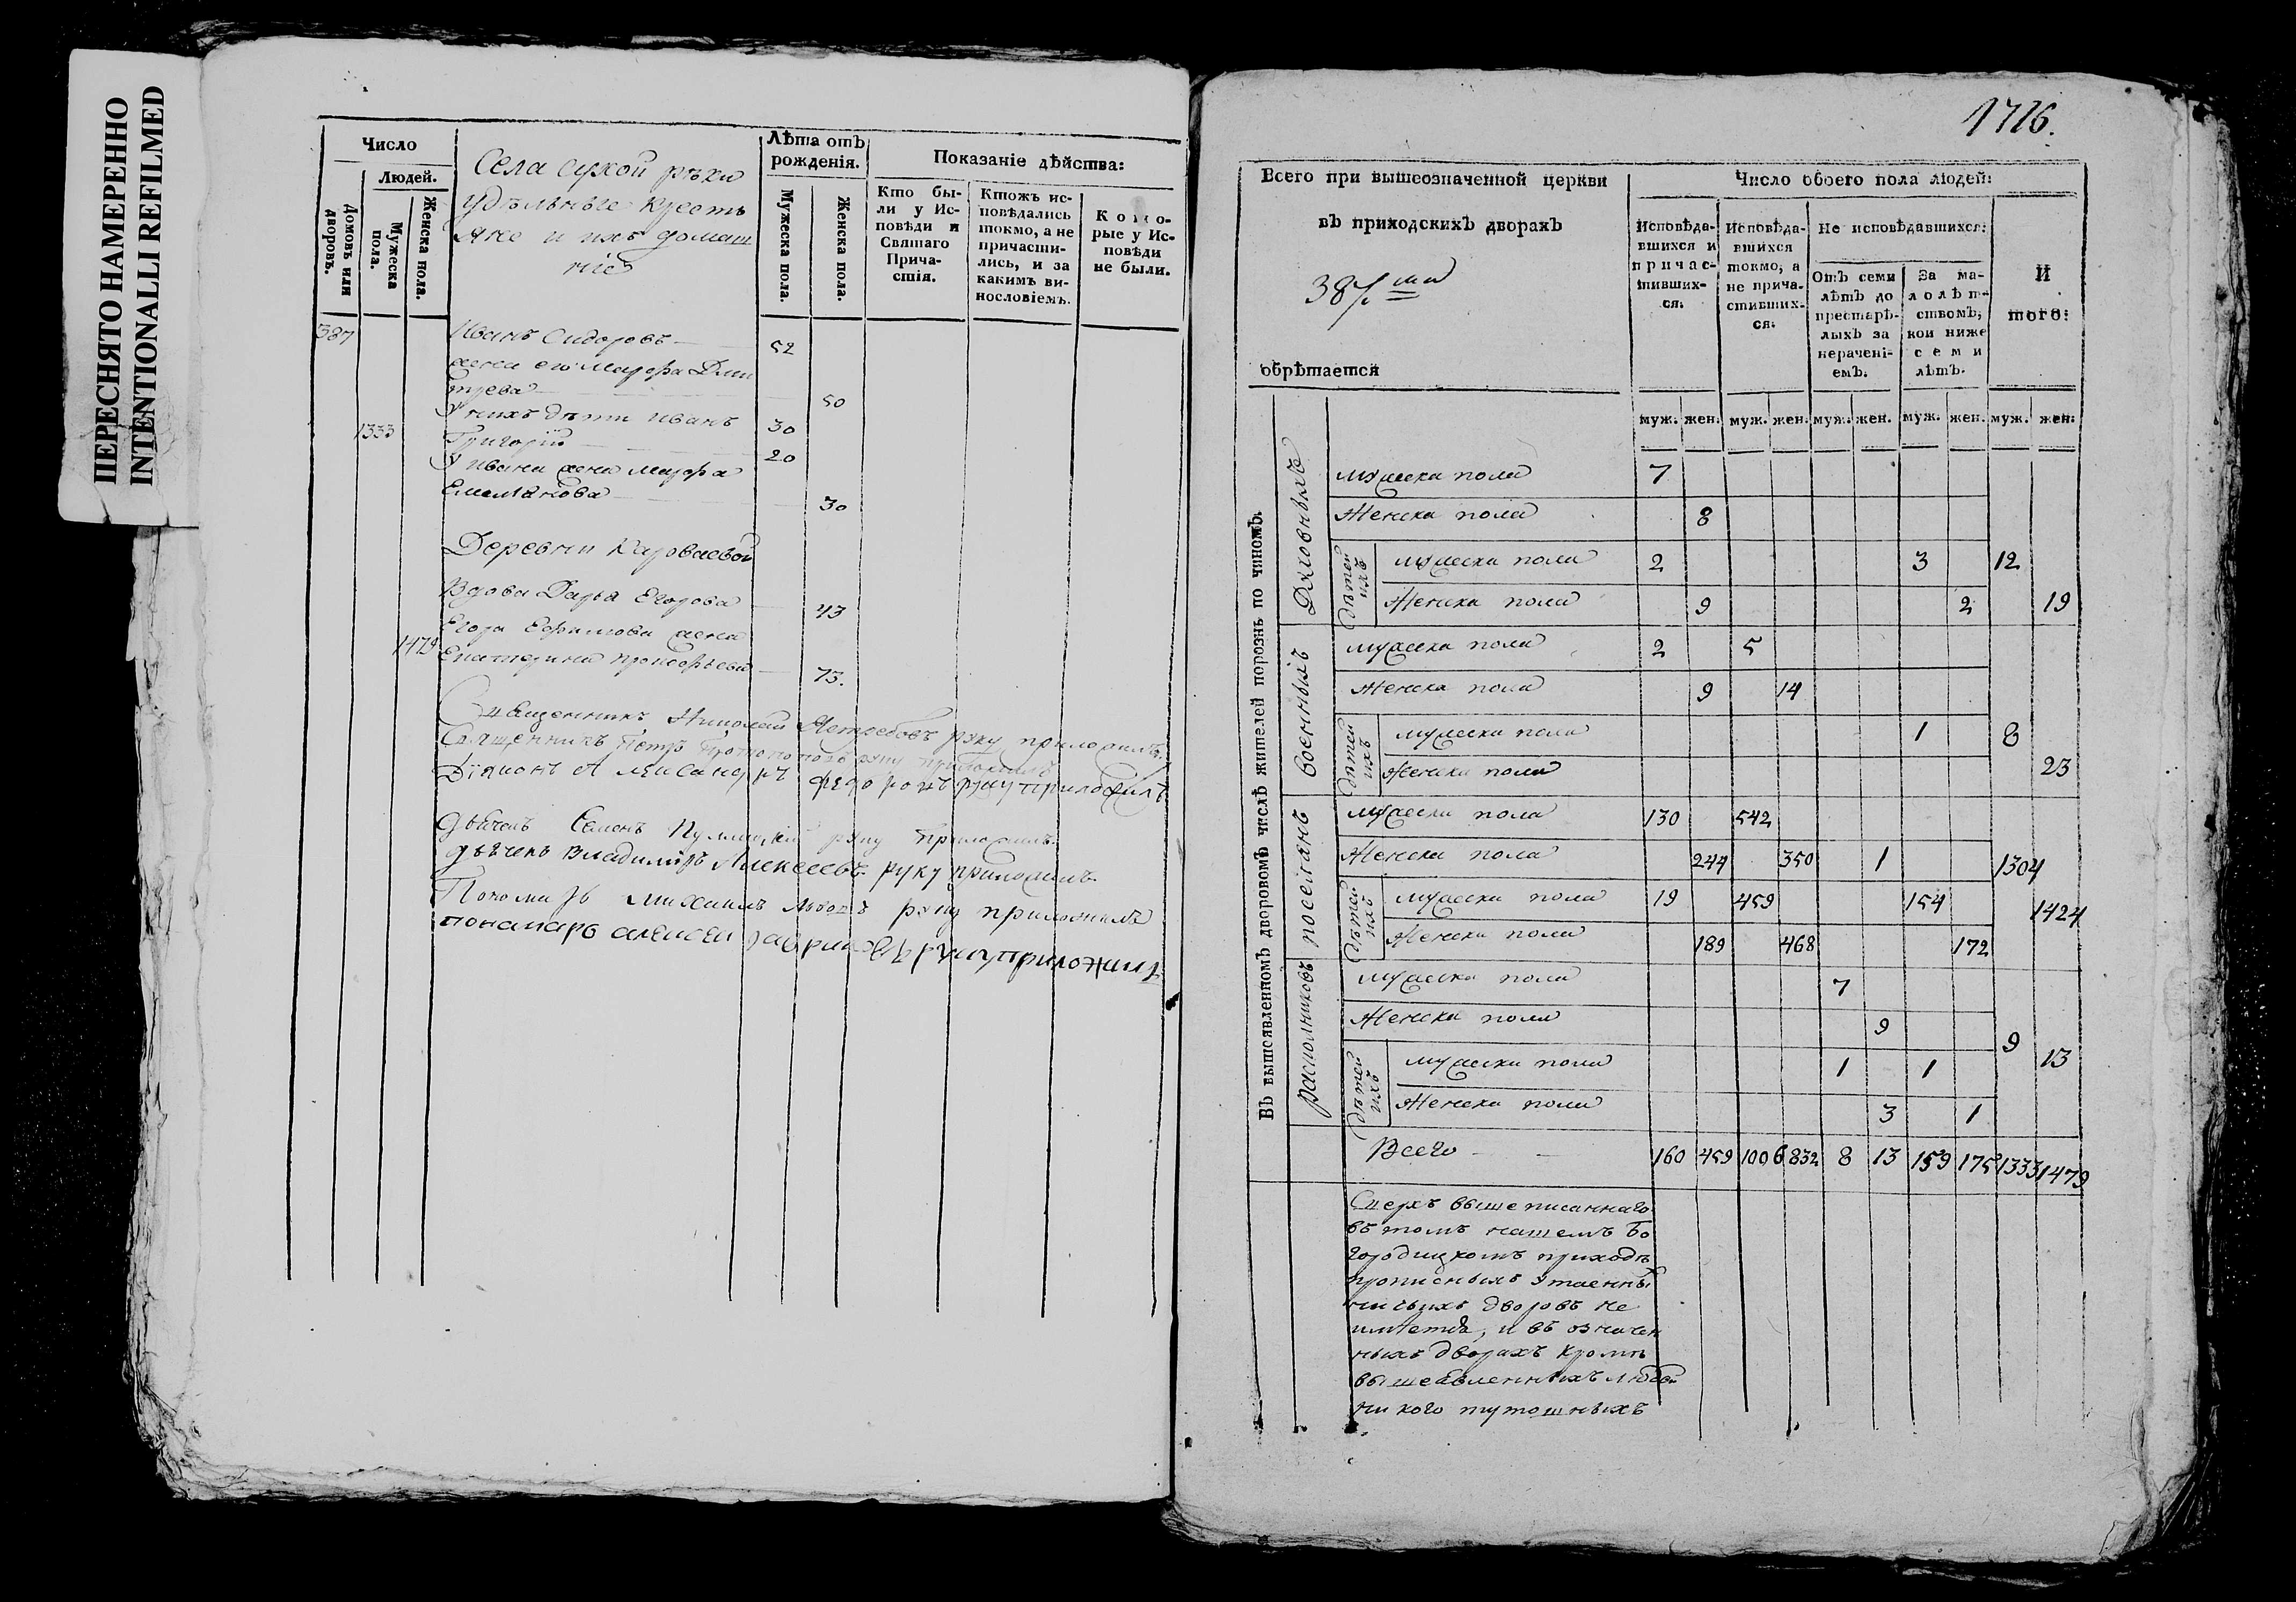 ПЕРЕСНЯТО НАМЕРЕННО
INTENTIONALLI REFILMED
Число
Людей.
Домовъ или дворовъ.
Мужеска пола.
Женска пола.
Села сухой рѣки
удѣльные кресть
яне и ихъ домаш
ніе
Лѣта отъ
рожденія.
Мужеска пола.
Женска пола.
Показаніе дѣйства:
Кто бы-
ли у Ис-
повѣди и
Святаго
Прича-
стія.
Ктожъ ис-
повѣдались
токмо, а не
причасти-
лись, и за
какимъ ви-
нословіемъ.
Кото-
рые у Ис-
повѣди
не были.
387
Иванъ Сидоровъ 52
жена его Марфа Дми
тріева 50
У нихъ дѣти Иванъ 30
1333
Григорій 20
У Ивана жена Марфа
Емельянова 30
Деревни Кароваевой
Вдова Дарья Егорова 43
Егора Ефимова жена
1479
Екатерина Прокофьева 73.
Священникъ Николай Ястребовъ руку приложилъ.
Священникъ Петръ Протопоповъ руку приложилъ
Діяконъ Александръ Федоровъ руку приложилъ
дьячекъ Семенъ руку приложилъ.
дьячекъ Владимиръ Алексеевъ руку приложилъ
Пономарь Михаилъ руку приложилъ
пономарь алексей руку приложилъ
1716.
Всего при вышеозначенной церкви
въ приходскихъ дворахъ
387.ми
обрѣтается
Число обоего пола людей:
Исповѣда-
вшихся и
причас-
тивших-
ся.
Исповѣда-
вшихся
токмо, а
не прича-
стивших-
ся.
Не исповѣдавшихся:
Отъ семи
лѣтъ до
престарѣ-
лыхъ за
нерачені-
емъ.
За ма-
лолѣт-
ствомъ,
кои ниже
семи
лѣтъ.
И
того:
муж. жен. муж. жен. муж. жен. муж. жен. муж. жен.
Въ вышеявленномъ дворовомъ числѣ жителей порознь по чиномъ.
Духовныхъ
мужеска пола 7
Женска пола 8
дѣтей ихъ
мужеска пола 2 3 12
Женска пола 9 2 19
Военныхъ
мужеска пола 2 5
Женска пола 9 14
дѣтей ихъ
мужеска пола 1 8
Женска пола 23
поселянъ
мужеска пола 130 542
Женска пола 244 350 1 1304
дѣтей ихъ
мужеска пола 19 459 154 1424
Женска пола 189 468 172
раскольниковъ
мужеска пола 7
Женска пола 9 9
дѣтей ихъ
мужеска пола 1 1 13
Женска пола 3 1
Всего 160 459 1006 832 8 13 159 175 1333 1479
Сверхъ вышеписаннаго
въ томъ нашемъ Бо
городицкомъ приходѣ
прописныхъ утаенны
ни чьихъ дворовъ не
имѣется, и въ означен
ныхъ дворахъ кромѣ
вышеявленныхъ людей
ни кого тутошныхъ